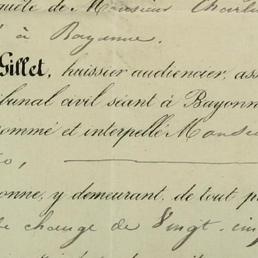 quête de Monsieur Charl
à Bayonne.
Gillet, huissier audiencier, ass
ribunal civil séant à Bayonn
ommé et interpellé Monsieu
onne, y demeurant, de tout p
change de Vingt-cin